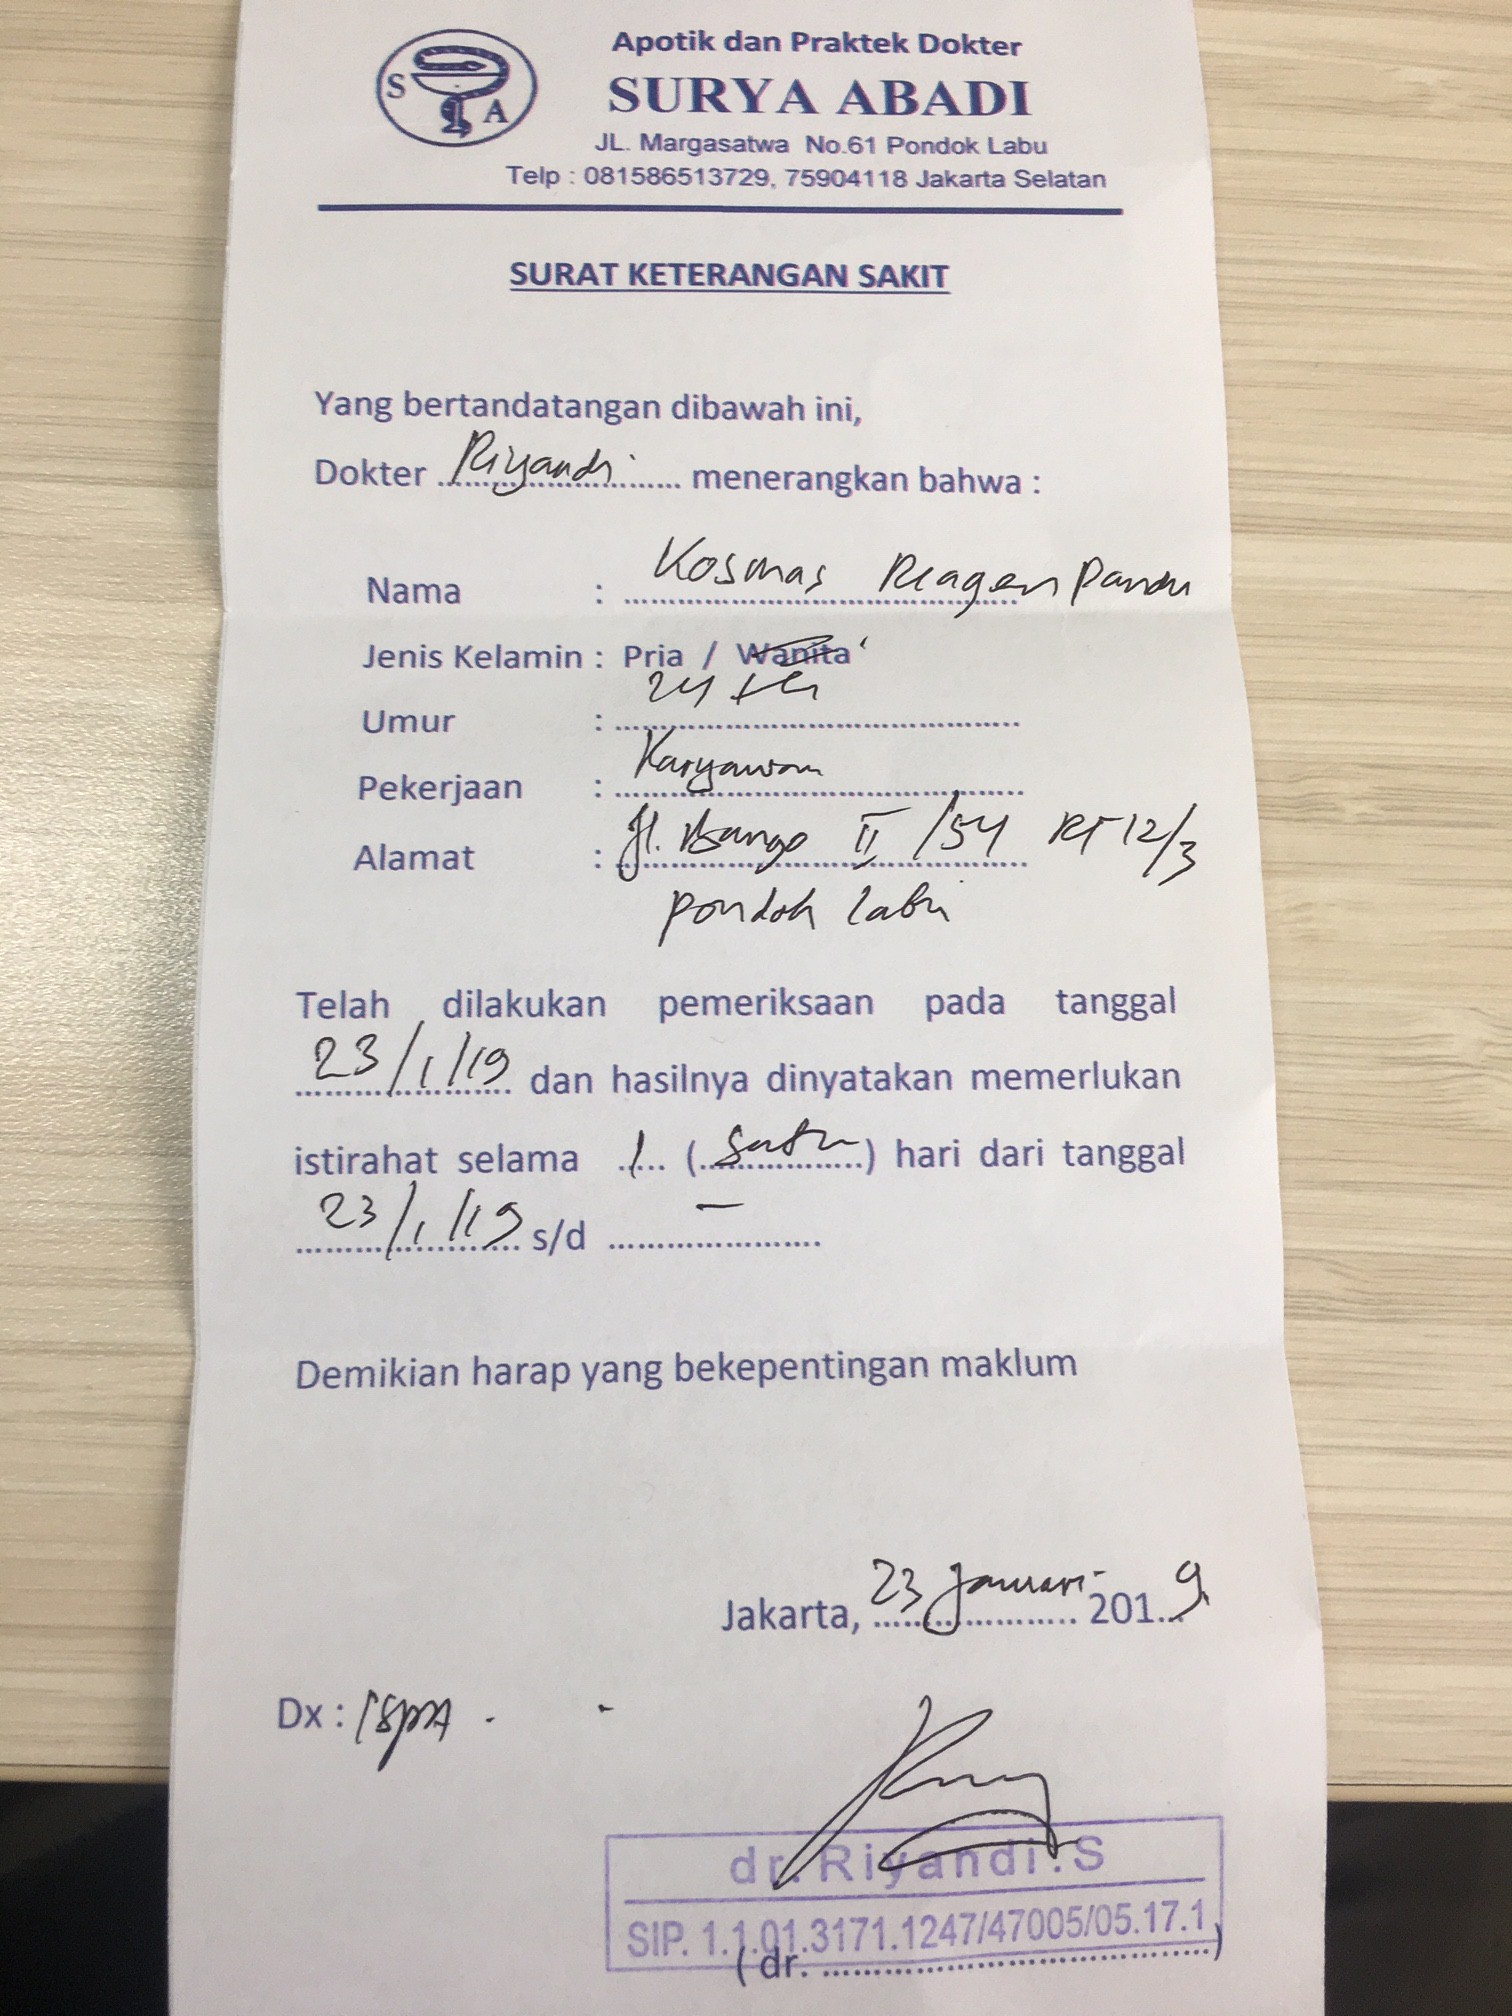 S A
Apotik dan Praktek Dokter
SURYA ABADI
JL. Margasatwa No.61 Pondok Labu
Telp : 081586513729, 75904118 Jakarta Selatan
SURAT KETERANGAN SAKIT
Yang bertandatangan dibawah ini,
Dokter Riyandi menerangkan bahwa :
Nama : Kosmas Reagen Pandu
Jenis Kelamin : Pria / Wanita
Umur : 24 th
Pekerjaan : Karyawan
Alamat : Jl. Bango II /54 RT 12/3
Pondok Labu
Telah dilakukan pemeriksaan pada tanggal
23/1/19 dan hasilnya dinyatakan memerlukan
istirahat selama 1 (Satu) hari dari tanggal
23/1/19 s/d -
Demikian harap yang bekepentingan maklum
Jakarta, 23 Januari 2019.
Dx : ISPA
dr. Riyandi.S
SIP. 1.1.01.3171.1247/47005/05.17.1
( dr. .......................... )